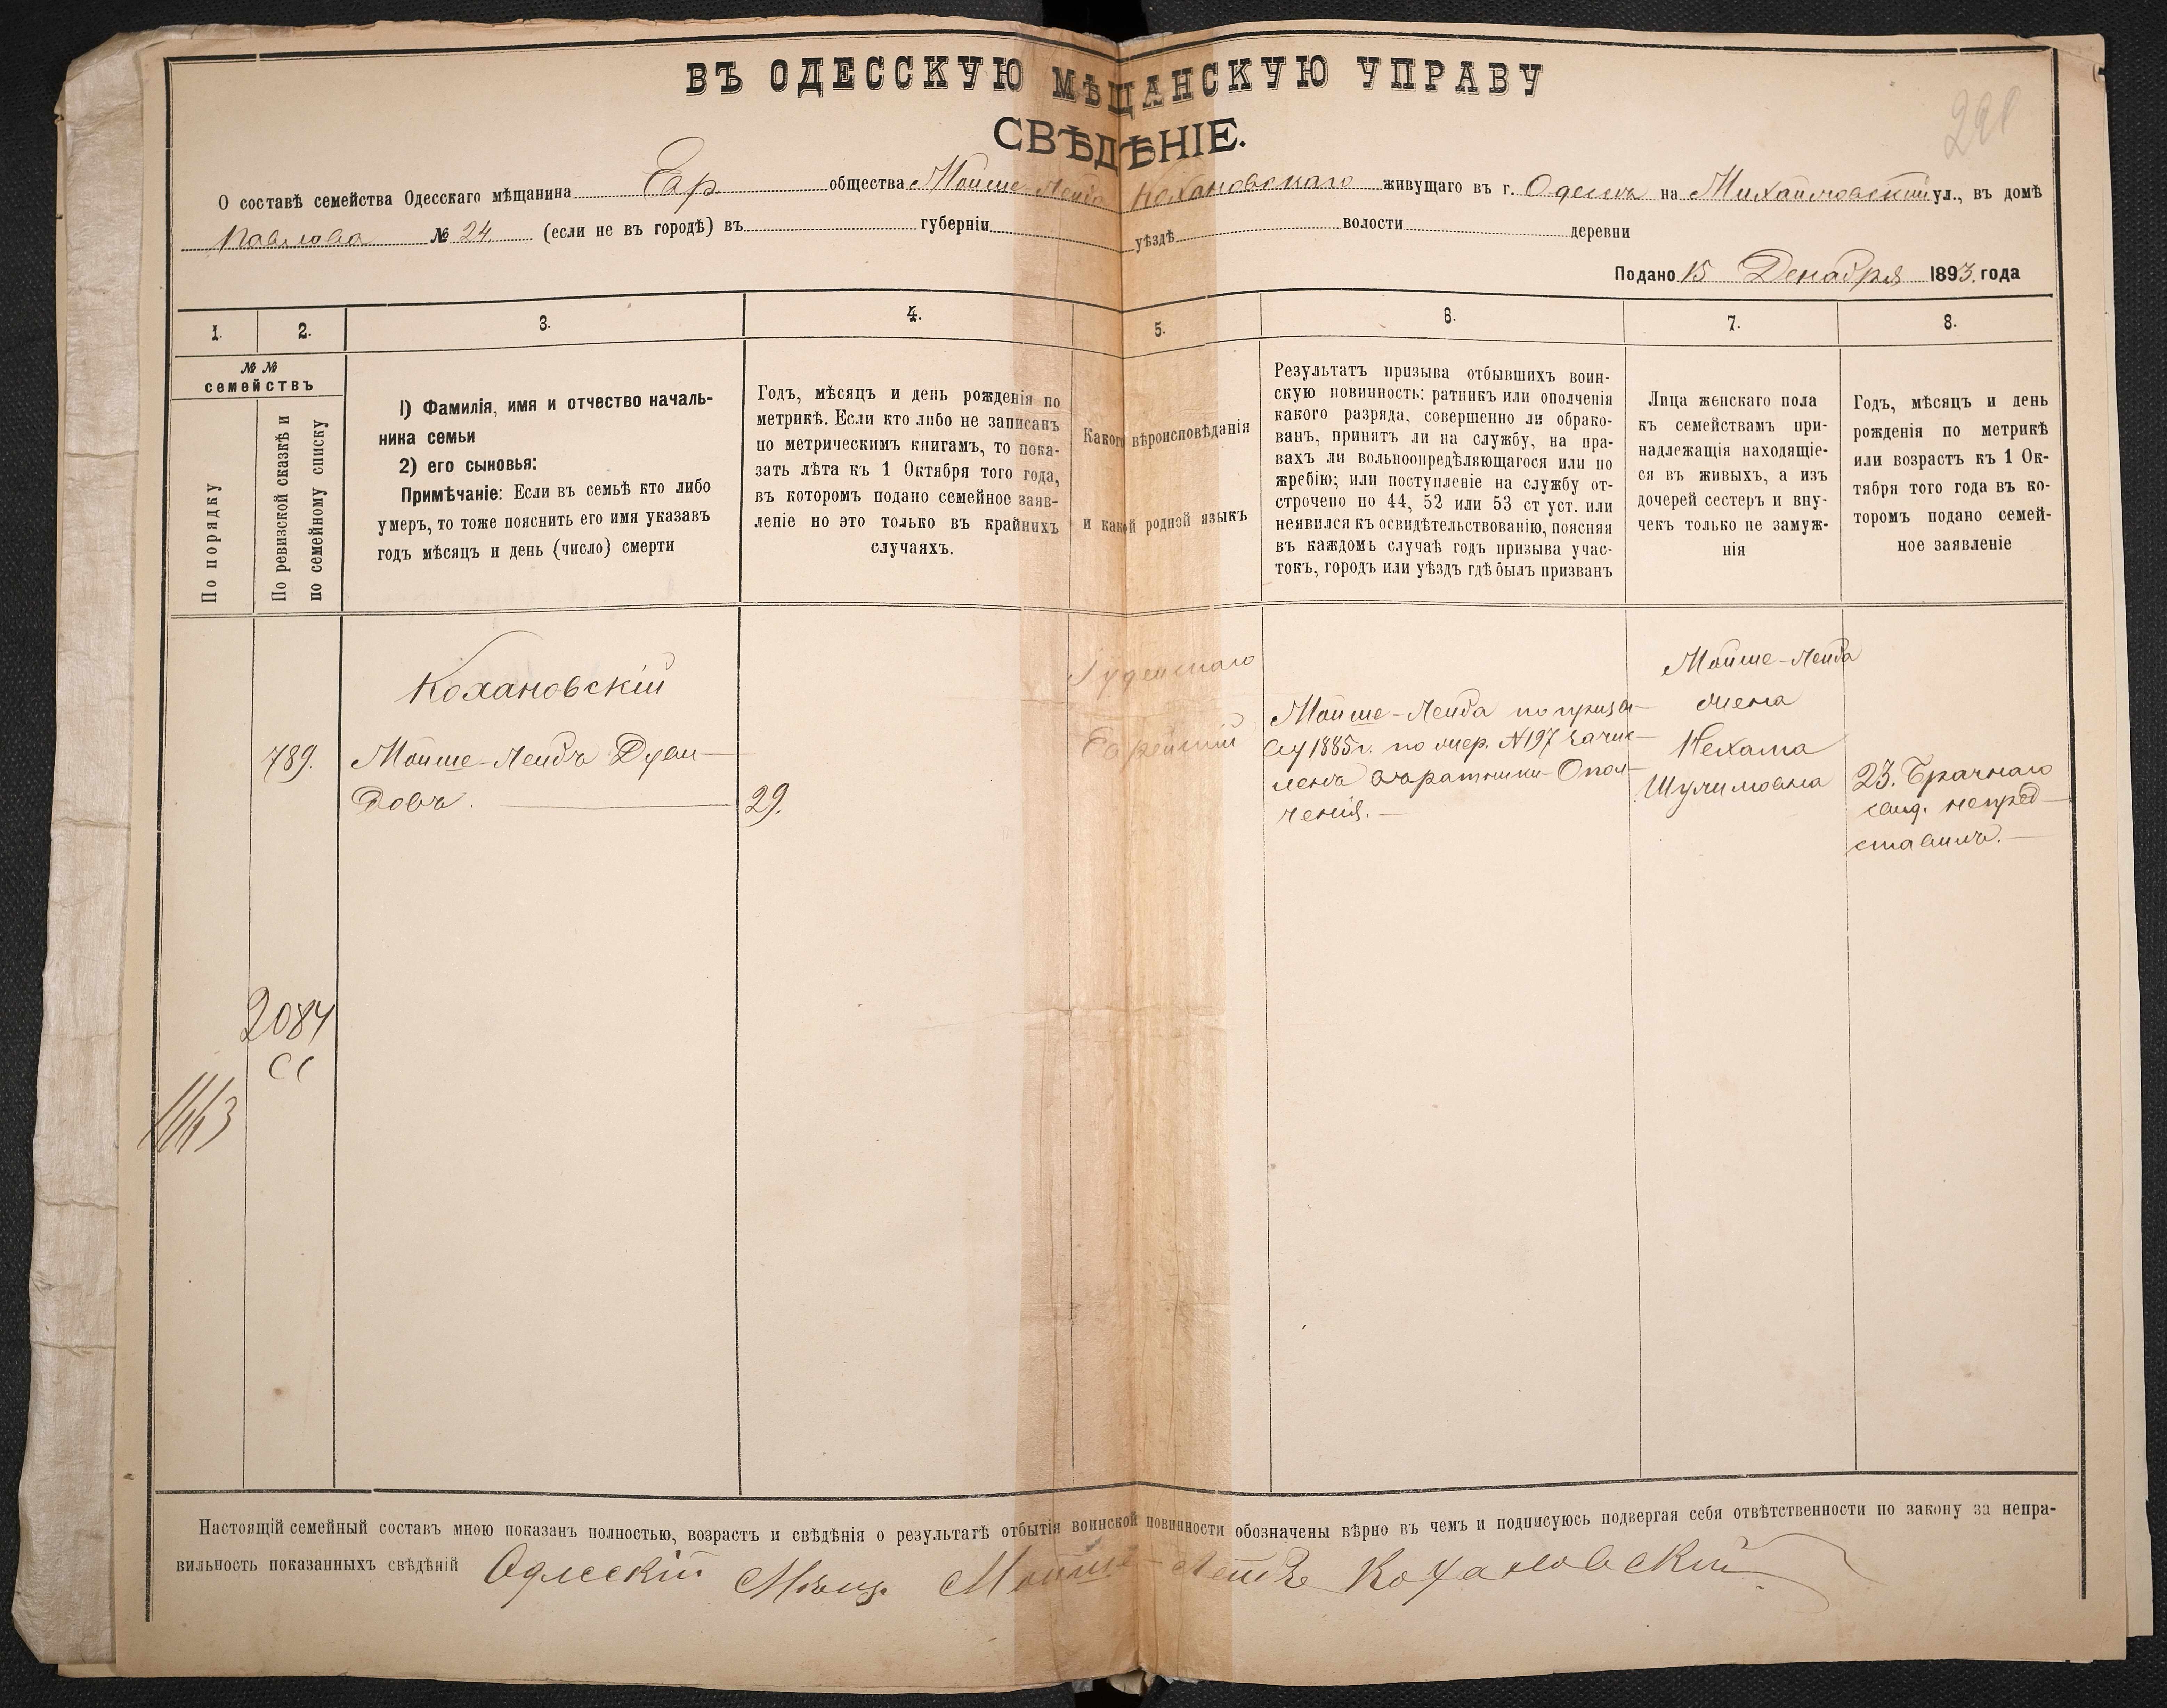 ВЪ ОДЕССКУЮ МѢЩАНСКУЮ УПРАВУ
СВѢДѢНІЕ.
О составѣ семейства Одесскаго мѣщанина Евр. общества Мойше-Лейба Кохановскаго живущаго въ г. Одессѣ на Михайловской ул., въ домѣ
Павлова № 24 (если не въ городѣ) въ губерніи уѣздѣ волости деревни
Подано 15 Декабря 1893. года
1. 2. 3. 4. 5. 6. 7. 8.
№ №
семействъ
По порядку
По ревизской сказкѣ и
по семейному списку
1) Фамилія, имя и отчество началь-
ника семьи
2) его сыновья:
Примѣчаніе: Если въ семьѣ кто либо
умеръ, то тоже пояснить его имя указавъ
годъ мѣсяцъ и день (число) смерти
Годъ, мѣсяцъ и день рожденія по
метрикѣ. Если кто либо не записанъ
по метрическимъ книгамъ, то пока-
зать лѣта къ 1 Октября того года,
въ которомъ подано семейное заяв-
леніе но это только въ крайнихъ
случаяхъ.
Какого вѣроисповѣданія
и какой родной языкъ
Результатъ призыва отбывшихъ воин-
скую повинность: ратникъ или ополченія
какого разряда, совершенно ли обрако-
ванъ, принятъ ли на службу, на пра-
вахъ ли вольноопредѣляющагося или по
жребію; или поступленіе на службу от-
строчено по 44, 52 или 53 ст уст. или
неявился къ освидѣтельствованію, поясняя
въ каждомь случаѣ годъ призыва учас-
токъ, городъ или уѣздъ гдѣ былъ призванъ
Лица женскаго пола
къ семействамъ при-
надлежащія находящіе-
ся въ живыхъ, а изъ
дочерей сестеръ и вну-
чекъ только не замуж-
нія
Годъ, мѣсяцъ и день
рожденія по метрикѣ
или возрастъ къ 1 Ок-
тября того года въ ко-
торомъ подано семей-
ное заявленіе
Кохановскій
789.
Мойше-Лейбъ Дуви-
довъ.
29.
Іудейскаго
Еврейскій
Мойше-Лейба по призы-
ву 1885 г. по жер. № 197 зачис-
ленъ въ ратники Опол-
ченія.
Мойше-Лейба
жена
Нехама
Шулимовна
23. Брачнаго
свид. непред-
ставилъ.
2084
СС
1443
Настоящій семейный составъ мною показанъ полностью, возрастъ и свѣдѣнія о результатѣ отбытія воинской повинности обозначены вѣрно въ чемъ и подписуюсь подвергая себя отвѣтственности по закону за непра-
вильность показанныхъ свѣдѣній Одесскій Мѣщ. Мойше-Лейбъ Кохановскій